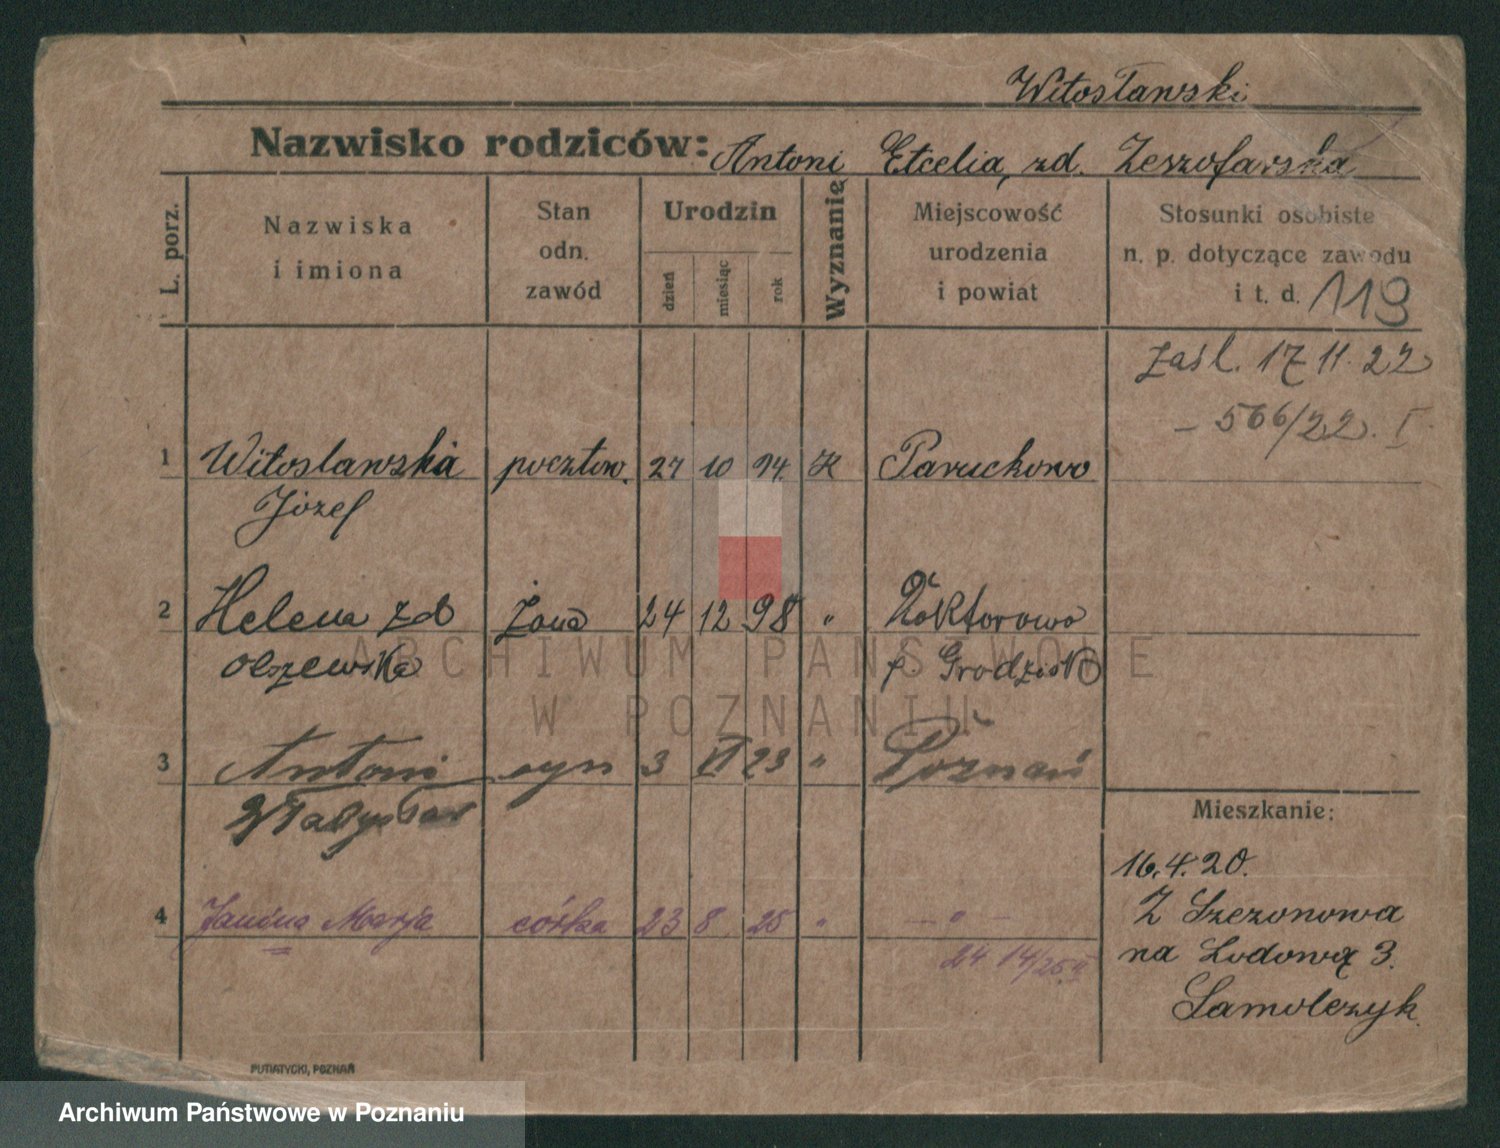 Witosławski
Nazwisko rodziców: Antoni Etcelia, zd. Zeszofarska
L. porz.
Nazwiska
i imiona
Stan
odn.
zawód
Urodzin
dzień
miesiąc
rok
Wyznanie
Miejscowość
urodzenia
i powiat
Stosunki osobiste
n. p. dotyczące zawodu
i t. d. 119
Zaśl. 17 11. 22
– 566/22. I
1 Witoslawska pocztow. 27 10 94. K Paruchowo
Józef
2 Helena zd Żona 24 12 98 " Doktorowo
Olszewska p. Grodzisk
3 Antoni syn 3 VI 23 " Poznań
Władysław
4 Janina Marja córka 23 8 25 " – " –
24 14/25 II
Mieszkanie:
16.4.20.
Z Szczonowa
na Lodową 3.
Samolczyk
PUTIATYCKI, POZNAŃ
ARCHIWUM PAŃSTWOWE
W POZNANIU
Archiwum Państwowe w Poznaniu